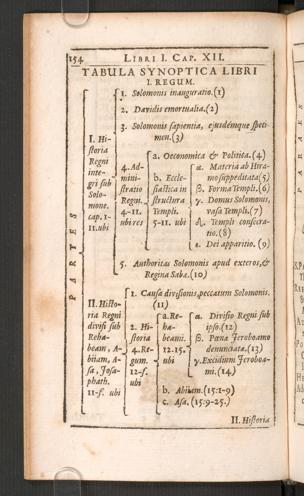 154 LIBRI I. CAP. XII.
TABULA SYNOPTICA LIBRI
I. REGUM.
PARTES
I. Hi-
storia
Regni
inte-
gri sub
Solo-
mone.
cap. 1-
11. ubi
1. Solomonis inauguratio. (1)
2. Davidis emortualia. (2)
3. Solomonis sapientia, ejusdémque speci-
men. (3)
4. Ad-
mini-
stratio
Regni.
4-11.
ubi res
a. Oeconomica & Politica. (4)
b. Eccle-
siastica in
structura
Templi.
5-11. ubi
α. Materia ab Hira-
mo suppeditata (5)
β. Forma Templi. (6)
γ. Domus Solomonis,
vasa Templi. (7)
δ. Templi consecra-
tio. (8)
ε. Dei apparitio. (9)
5. Authoritas Solomonis apud exteros, &
Regina Sabæ. (10)
II. Histo-
ria Regni
divisi sub
Reha-
beam, A-
biam, A-
sa, Josa-
phath.
11-f. ubi
1. Causa divisionis, peccatum Solomonis.
(11)
2. Hi-
storia
4. Re-
gum.
12-f.
ubi
a. Re-
ha-
beami.
12. 15.
ubi
α. Divisio Regni sub
ipso. (12)
β. Pœna Jeroboamo
denunciata. (13)
γ. Excidium Jeroboa-
mi. (14)
b. Abiam. (15:1-9)
c. Asæ. (15:9-25.)
II. Historia